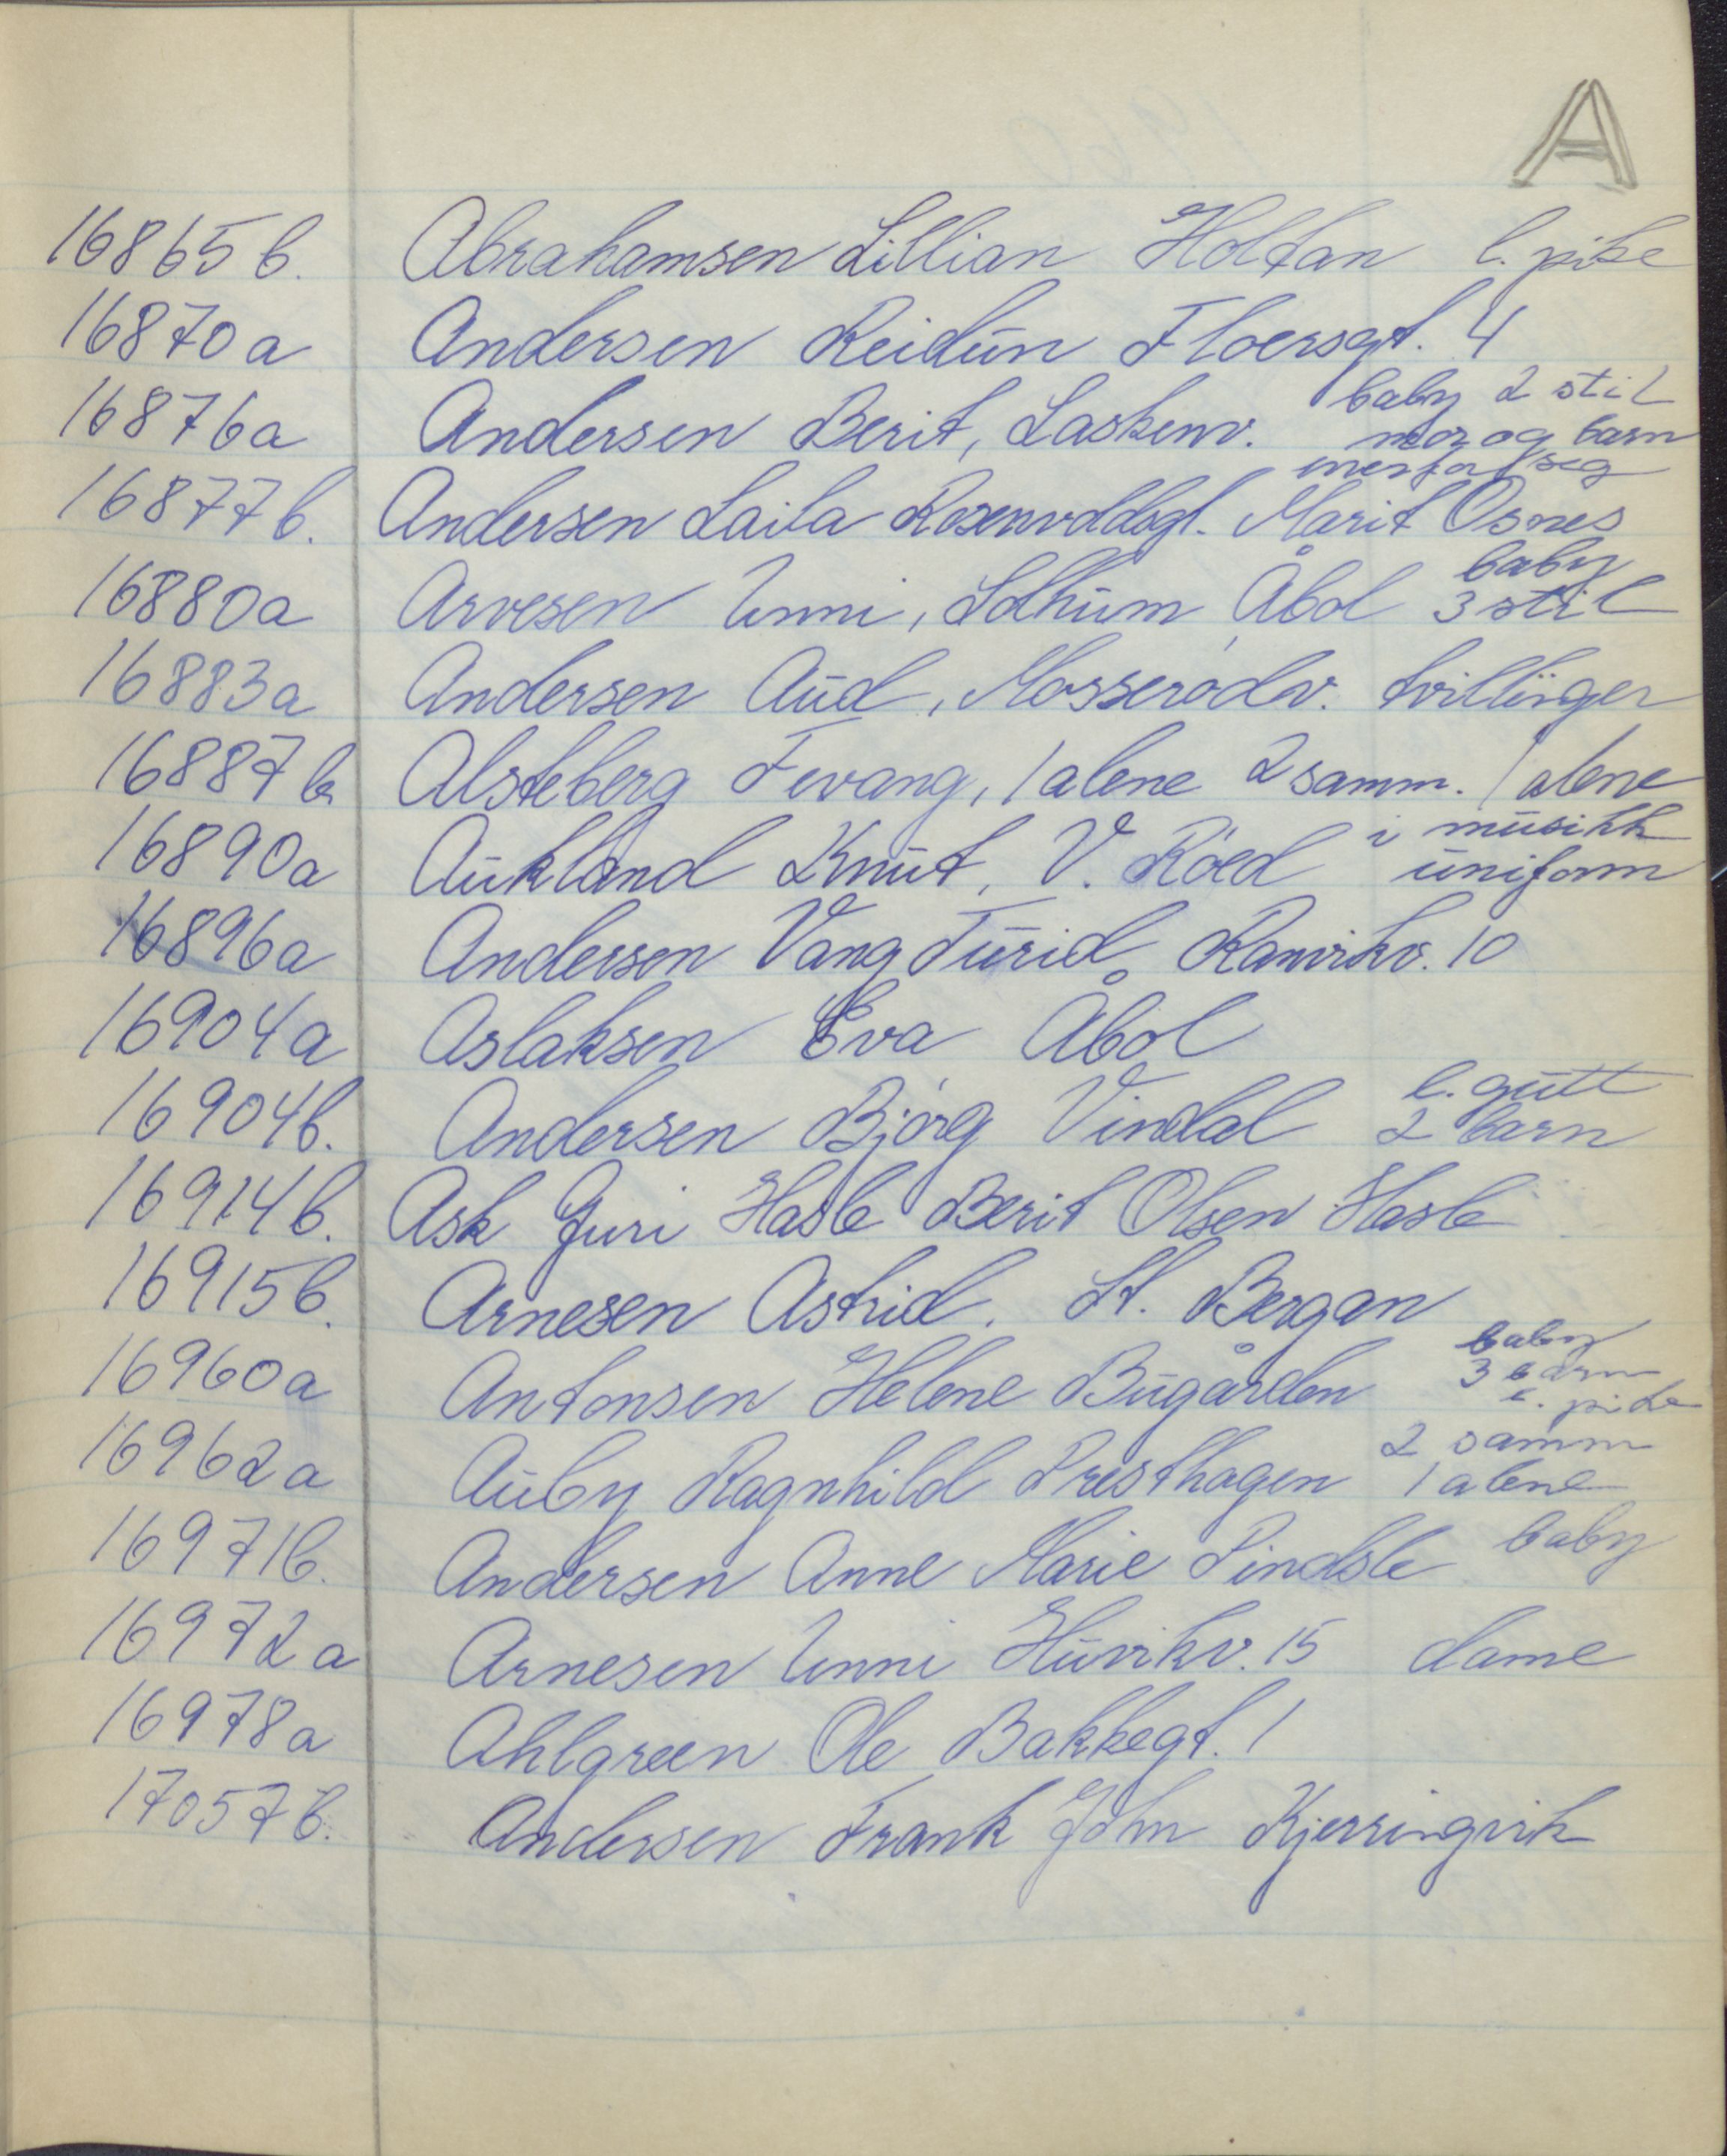 A
16865 b. Abrahamsen Lillian Holtan l. pike
16870 a Andersen Reidun Floersgt. 4
baby 2 stil
16876 a Andersen Berit, Laskenv. mor og barn
hver for seg
16877 b. Andersen Laila Rosenvoldsgt. Marit Osnes
baby
16880 a Arvesen Unni, Solhum Åbol 3 stil
16883 a Andersen Aud, Mosserødv. tvillinger
16887 b Alsteberg Fevang, 1 alene 2 samm. 1 alene
i musikk
16890 a Aukland Knut, V. Røed uniform
16896 a Andersen Vang Turid Ranvikv. 10
16904 a Aslaksen Eva Åbol
l. gutt
16904 b. Andersen Bjørg Vindal 2 barn
16914 b. Ask Guri Hasle Berit Olsen Hasle
16915 b. Arnesen Astrid. St. Bergan
baby
3 barn
16960 a Antonsen Helene Bugården l. pike
2 samm
16962 a Auby Ragnhild Presthagen 1 alene
16971 b. Andersen Anne Marie Pindsle baby
16972 a Arnesen Unni Huvikv. 15 dame
16978 a Ahlgreen Ole Bakkegt. 1
17057 b. Andersen Frank John Kjerringvik